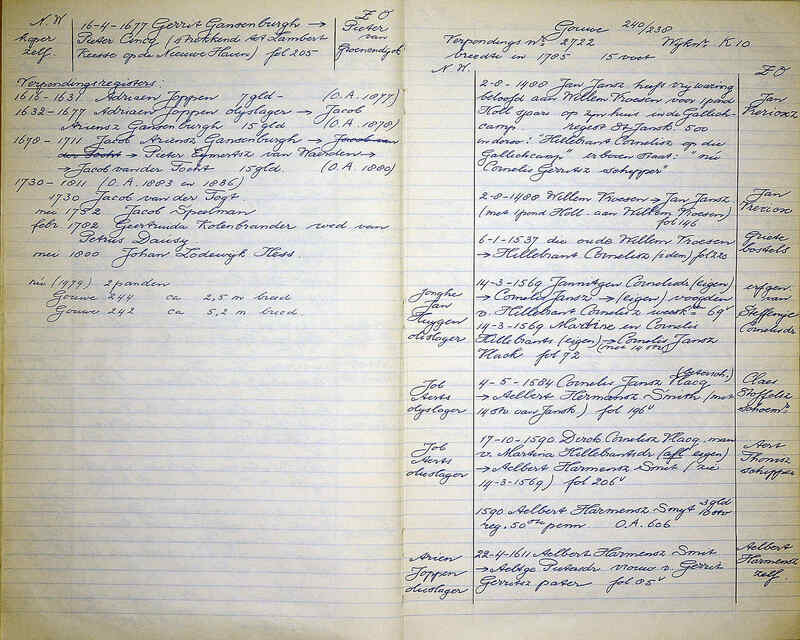 N.W
koper
zelf.
16-4-1677 Gerrit Gansenburgh →
Pieter Cincq (strekkend tot Lambert
Keesse op de Nieuwe Haven) fol 205
Z O
Pieter
van
Groenendyck
Verpondingsregisters:
1616-1631 Adriaen Joppen 7 gld - (O.A. 1877)
1632-1677 Adriaen Joppen olyslager → Jacob
Ariensz Gansenburgh 15 gld (O.A. 1878)
1678-1711 Jacob Ariensz Gansenburgh → Jacob van
der Tocht → Pieter Eymertsz van Waerden →
→ Jacob van der Tocht 15 gld. (O.A. 1880)
1730-1811 (O.A. 1883 en 1886)
1730 Jacob van der Togt
mei 1752 Jacob Speelman
febr 1782 Geertruida Kolenbrander wed van
Petrus Dausy
mei 1800 Johan Lodewyk Hess.
nu (1979) 2 panden
Gouwe 244 ca 2,5 m breed
Gouwe 242 ca 5,2 m breed
Gouwe 240/238
Verpondings nr. 2722 Wyknr. K 10
breedte in 1785 15 voet
N.W.
Z O
2-8-1488 Jan Jansz heeft vrywaring
beloofd aan Willem Kroesen voor 1 pond
Holl. sjaars op zyn huis in de Gallich-
camp. regest St Jansk 500
in dorso: "Hillebrant Cornelisz op die
Gallichcamp" erboven staat: "nu
Cornelis Gerritsz schipper"
Jan
Prezioesz
2-8-1488 Willem Kroesen → Jan Jansz
(met 1 pond Holl. aan Willem Kroesen)
fol 146
Jan
6-1-1537 die oude Willem Kroesen
→ Hillebrant Cornelisz (iden) fol 220
Griete
bostels
Jonghe
Jan
Huygen
olieslager
14-3-1569 Jannitgen Cornelisdr (eigen)
→ Cornelis Jansz → (eigen) voogden
v. Hillebrant Cornelisz weesk n 69v
14-3-1569 Martine en Cornelis
Hillebrants (eigen) → Cornelis Jansz
(met 14 str)
Vlack fol 72
erfgen.
van
Steffentje
Cornelisdr
Job
Aerts
olyslager
4-5-1584 Cornelis Jansz Vlacq
→ Aelbert Hermansz Smith (met
14 str aan Jansk) fol 196v
Claes
Stoffelsz
schoenm.
Job
Aerts
olieslager
17-10-1590 Derck Cornelisz Vlacq man
v. Martina Hillebrantsdr (afl eigen)
→ Aelbert Harmensz Smit (zie
14-3-1569) fol 206v
Aert
Thomsz
schipper
1590 Aelbert Harmensz Smyt 3 gld
10 str
reg. 50ste penn. O.A. 606
Arien
Joppen
olieslager
22-4-1611 Aelbert Harmensz Smit
→ Aeltge Pietersdr vrouw v. Gerrit
Gerritsz pater fol 85v
Aelbert
Harmensz
zelf.